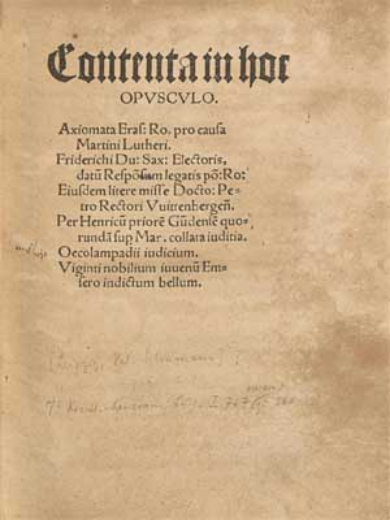 Contenta in hoc
OPVSCVLO.
Axiomata Eras: Ro. pro causa
Martini Lutheri.
Friderichi Du: Sax: Electoris,
datū Respōsum legatis pō: Ro:
Eiusdem litere misse Docto: Pe-
tro Rectori Vuittenbergeñ.
Per Henricū priorē Gūdensē quo-
rundā sup Mar. collata iuditia.
Oecolampadii iudicium.
Viginti nobilium iuuenū Em-
sero indictum bellum.